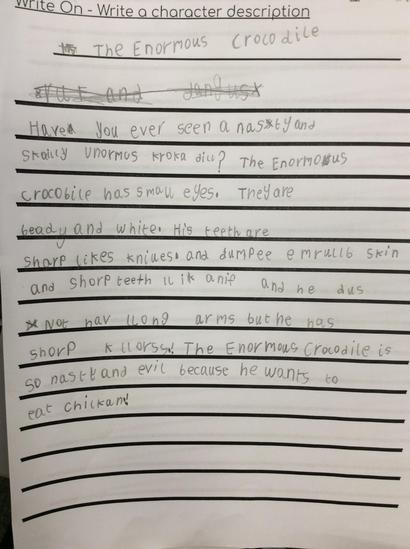 Write On - Write a character description
The Enormous Crocodile
and
Have you ever seen a nasty and
skailly unormus kroka dill? The Enormous
crocobile has small eyes. They are
beady and white. His teeth are
sharp likes knives. and dumpee emrullb skin
and shorp teeth llik a nif and he dus
Not hav llong arms but he has
shorp kllorss! The Enormous Crocodile is
so nastt and evil because he wants to
eat chickan!